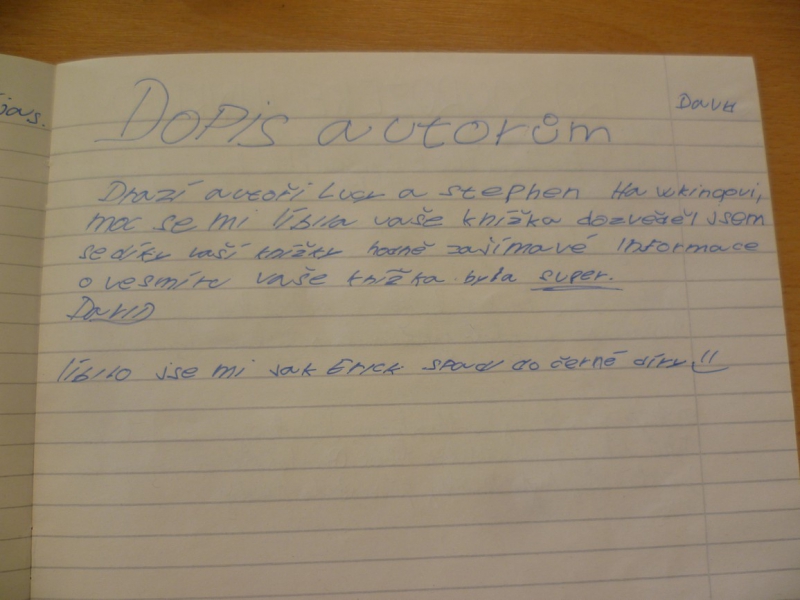 jas.
David
Dopis autorům
Drazí autoři Lucy a stephen Hawkingovi,
moc se mi líbila vaše knížka dozveděl jsem
se díky vaší knížky hodně zajímavé informace
o vesmíru vaše knížka byla super.
David
líbilo jse mi jak Erick spadl do černé díry!!